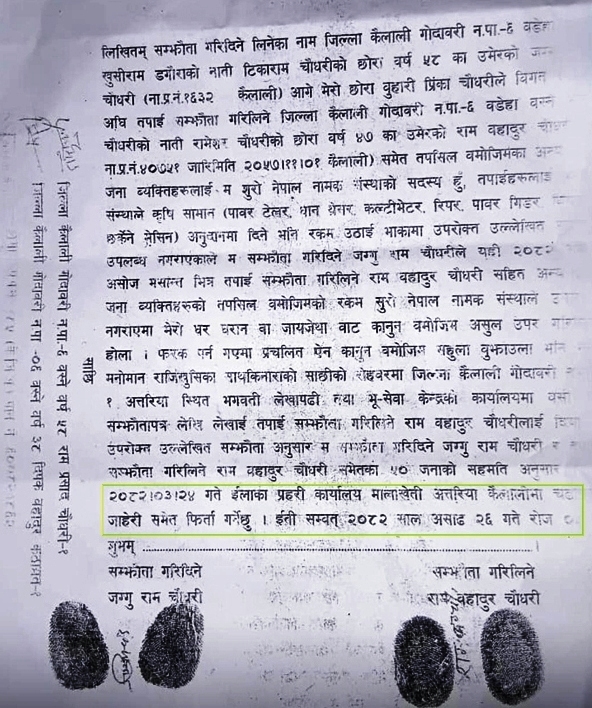 लिखितम् सम्झौता गरिदिने लिनेका नाम जिल्ला कैलाली गोदावरी न.पा.-६ वडेहा
खुसीराम डगौराको नाती टिकाराम चौधरीको छोरा वर्ष ५८ का उमेरको
चौधरी (ना.प्र.नं.१६३२ कैलाली) आगे मेरो छोरा वुहारी प्रिंका चौधरीले विगत
अघि तपाई सम्झौता गरिलिने जिल्ला कैलाली गोदावरी न.पा.-६ वडेहा
चौधरीको नाती रामेश्वर चौधरीको छोरा वर्ष ४७ का उमेरको राम वहादुर
ना.प्र.नं.४०७५१ जारिमिति २०५७।११।०१ कैलाली) समेत तपसिल वमोजिमका
जना व्यक्तिहरुलाई म शुरो नेपाल नामक संस्थाको सदस्य हुँ, तपाईहरुलाई
संस्थाले कृषि सामान (पावर टेलर, धान थ्रेसर, कल्टीभेटर, रिपर, पावर
छर्कने मेसिन) अनुदानमा दिने भनि रकम उठाई भाकामा उपरोक्त उल्लेखित
उपलब्ध नगराएकाले म सम्झौता गरिदिने जग्गु राम चौधरीले यही २०८२
असोज मसान्त भित्र तपाई सम्झौता गरिलिने राम वहादुर चौधरी सहित
जना व्यक्तिहरुको तपसिल वमोजिमको रकम सुरो नेपाल नामक संस्थाले
नगराएमा मेरो घर घरान वा जायजेथा वाट कानुन वमोजिम असुल उपर
होला । फरक पर्न गएमा प्रचलित ऐन कानुन वमोजिम सहुला वुझाउला
मनोमान राजिखुसिका साक्षीको रोहवरमा जिल्ला कैलाली गोदावरी
१ अत्तरिया स्थित भगवती लेखापढी तथा भू-सेवा केन्द्रका कार्यालयमा
सम्झौतापत्र लेखि लेखाई तपाई सम्झौता गरिलिने राम वहादुर चौधरीलाई
उपरोक्त उल्लेखित सम्झौता अनुसार म सम्झौता गरिदिने जग्गु राम चौधरी र
सम्झौता गरिलिने राम वहादुर चौधरी समेतका ५० जनाको सहमति अनुसार
२०८२।०३।२४ गते ईलाका प्रहरी कार्यालय मालाखेती अत्तरिया कैलालीमा
जाहेरी समेत फिर्ता गर्नेछु । ईती सम्वत् २०८२ साल असाढ २६ गते रोज
शुभम्
सम्झौता गरिदिने सम्झौता गरिलिने
जग्गु राम चौधरी राम वहादुर चौधरी
साक्षि
जिल्ला कैलाली गोदावरी न.पा.-६ वस्ने वर्ष ५८ राम प्रसाद चौधरी-१
जिल्ला कैलाली गोदावरी न.पा.-०६ वस्ने वर्ष ३८ वहादुर